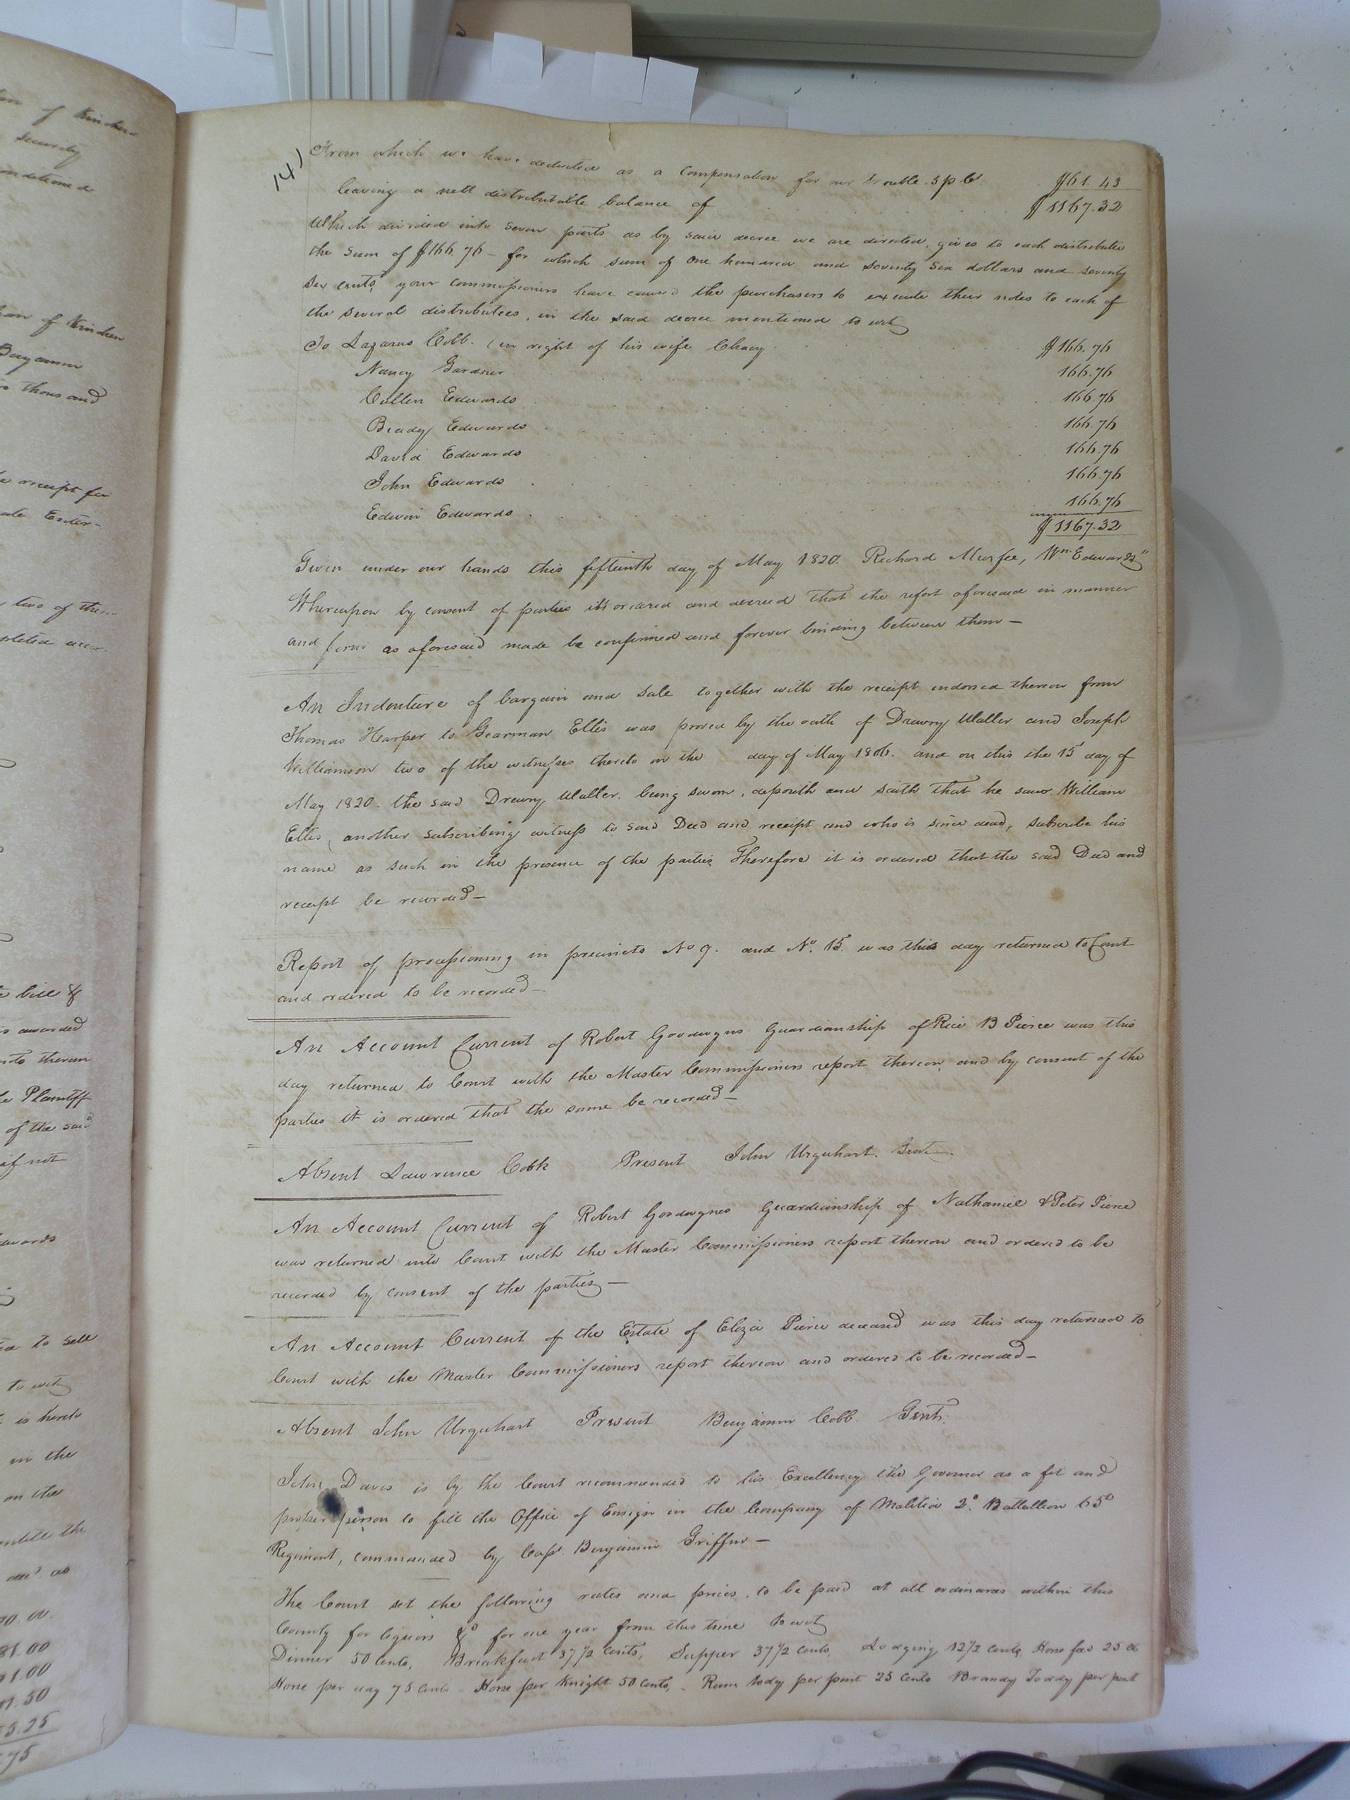 141
From which we have deducted as a Compensation for our trouble 5 p Ct $61.43
leaving a nett distributable balance of $1167.32
Which divided into seven parts as by said decree we are directed, gives to each distributee
the sum of $166.76 – for which sum of One hundred and seventy Six dollars and seventy
Six cents, your commissioners have caused the purchasers to execute their notes to each of
the several distributees, in the said decree mentioned to wit
To Lazarus Cobb (in right of his wife Chacy $166.76
Nancy Gardner 166.76
Cullen Edwards 166.76
Bradey Edwards 166.76
David Edwards 166.76
John Edwards 166.76
Edwin Edwards 166.76
$1167.32
Given under our hands this fifteenth day of May 1820. Richard Murfee, Wm. Edwards
Whereupon by consent of parties its ordered and decreed that the report aforesaid in manner
and form as aforesaid made be confirmed and forever binding between them –
An Indenture of bargain and sale together with the receipt endorsed thereon from
Thomas Harper to Gearman Ellis was proved by the oath of Drewry Waller and Joseph
Williamson two of the witnesses thereto on the day of May 1806. and on this the 15 day of
May 1820. the said Drewry Waller, being sworn, deposith and saith that he saw William
Ellis, another subscribing witness to said Deed and receipt and who is since dead, subscribe his
name as such in the presence of the parties Therefore it is ordered that the said Deed and
receipt be recorded –
Report of processioning in precincts No 9. and No. 15 was this day returned to Court
and ordered to be recorded –
An Account Current of Robert Goodwyns Guardianship of Rice B Pierce was this
day returned to Court with the Master Commissioners report thereon, and by consent of the
parties it is ordered that the same be recorded –
Absent Lawrence Cobb Present John Urquhart. Gent
An Account Current of Robert Goodwynes Guardianship of Nathaniel & Peter Pierce
was returned into Court with the Master Commissioners report thereon and ordered to be
recorded by consent of the parties –
An Account Current of the Estate of Eliza Pierce deceased was this day returned to
Court with the Master Commissioners report thereon and ordered to be recorded –
Absent John Urquhart Present Benjamin Cobb Gent.
John Davis is by the Court recommended to his Excellency the Governor as a fit and
proper person to fill the Office of Ensign in the Company of Malitia 2d. Battallion 65th
Regiment, commanded by Capt Benjamin Griffin –
The Court set the following rates and prices, to be paid at all ordinaries within this
County for liquors &c for one year from this time to wit
Dinner 50 cents, Breakfast 37 1/2 cents, Supper 37 1/2 cents, Lodging 12 1/2 cents, Horse fed 25 cts
Horse per day 75 cents – Horse per Knight 50 cents, – Rum tody per pint 25 cents Brandy Toddy per pint